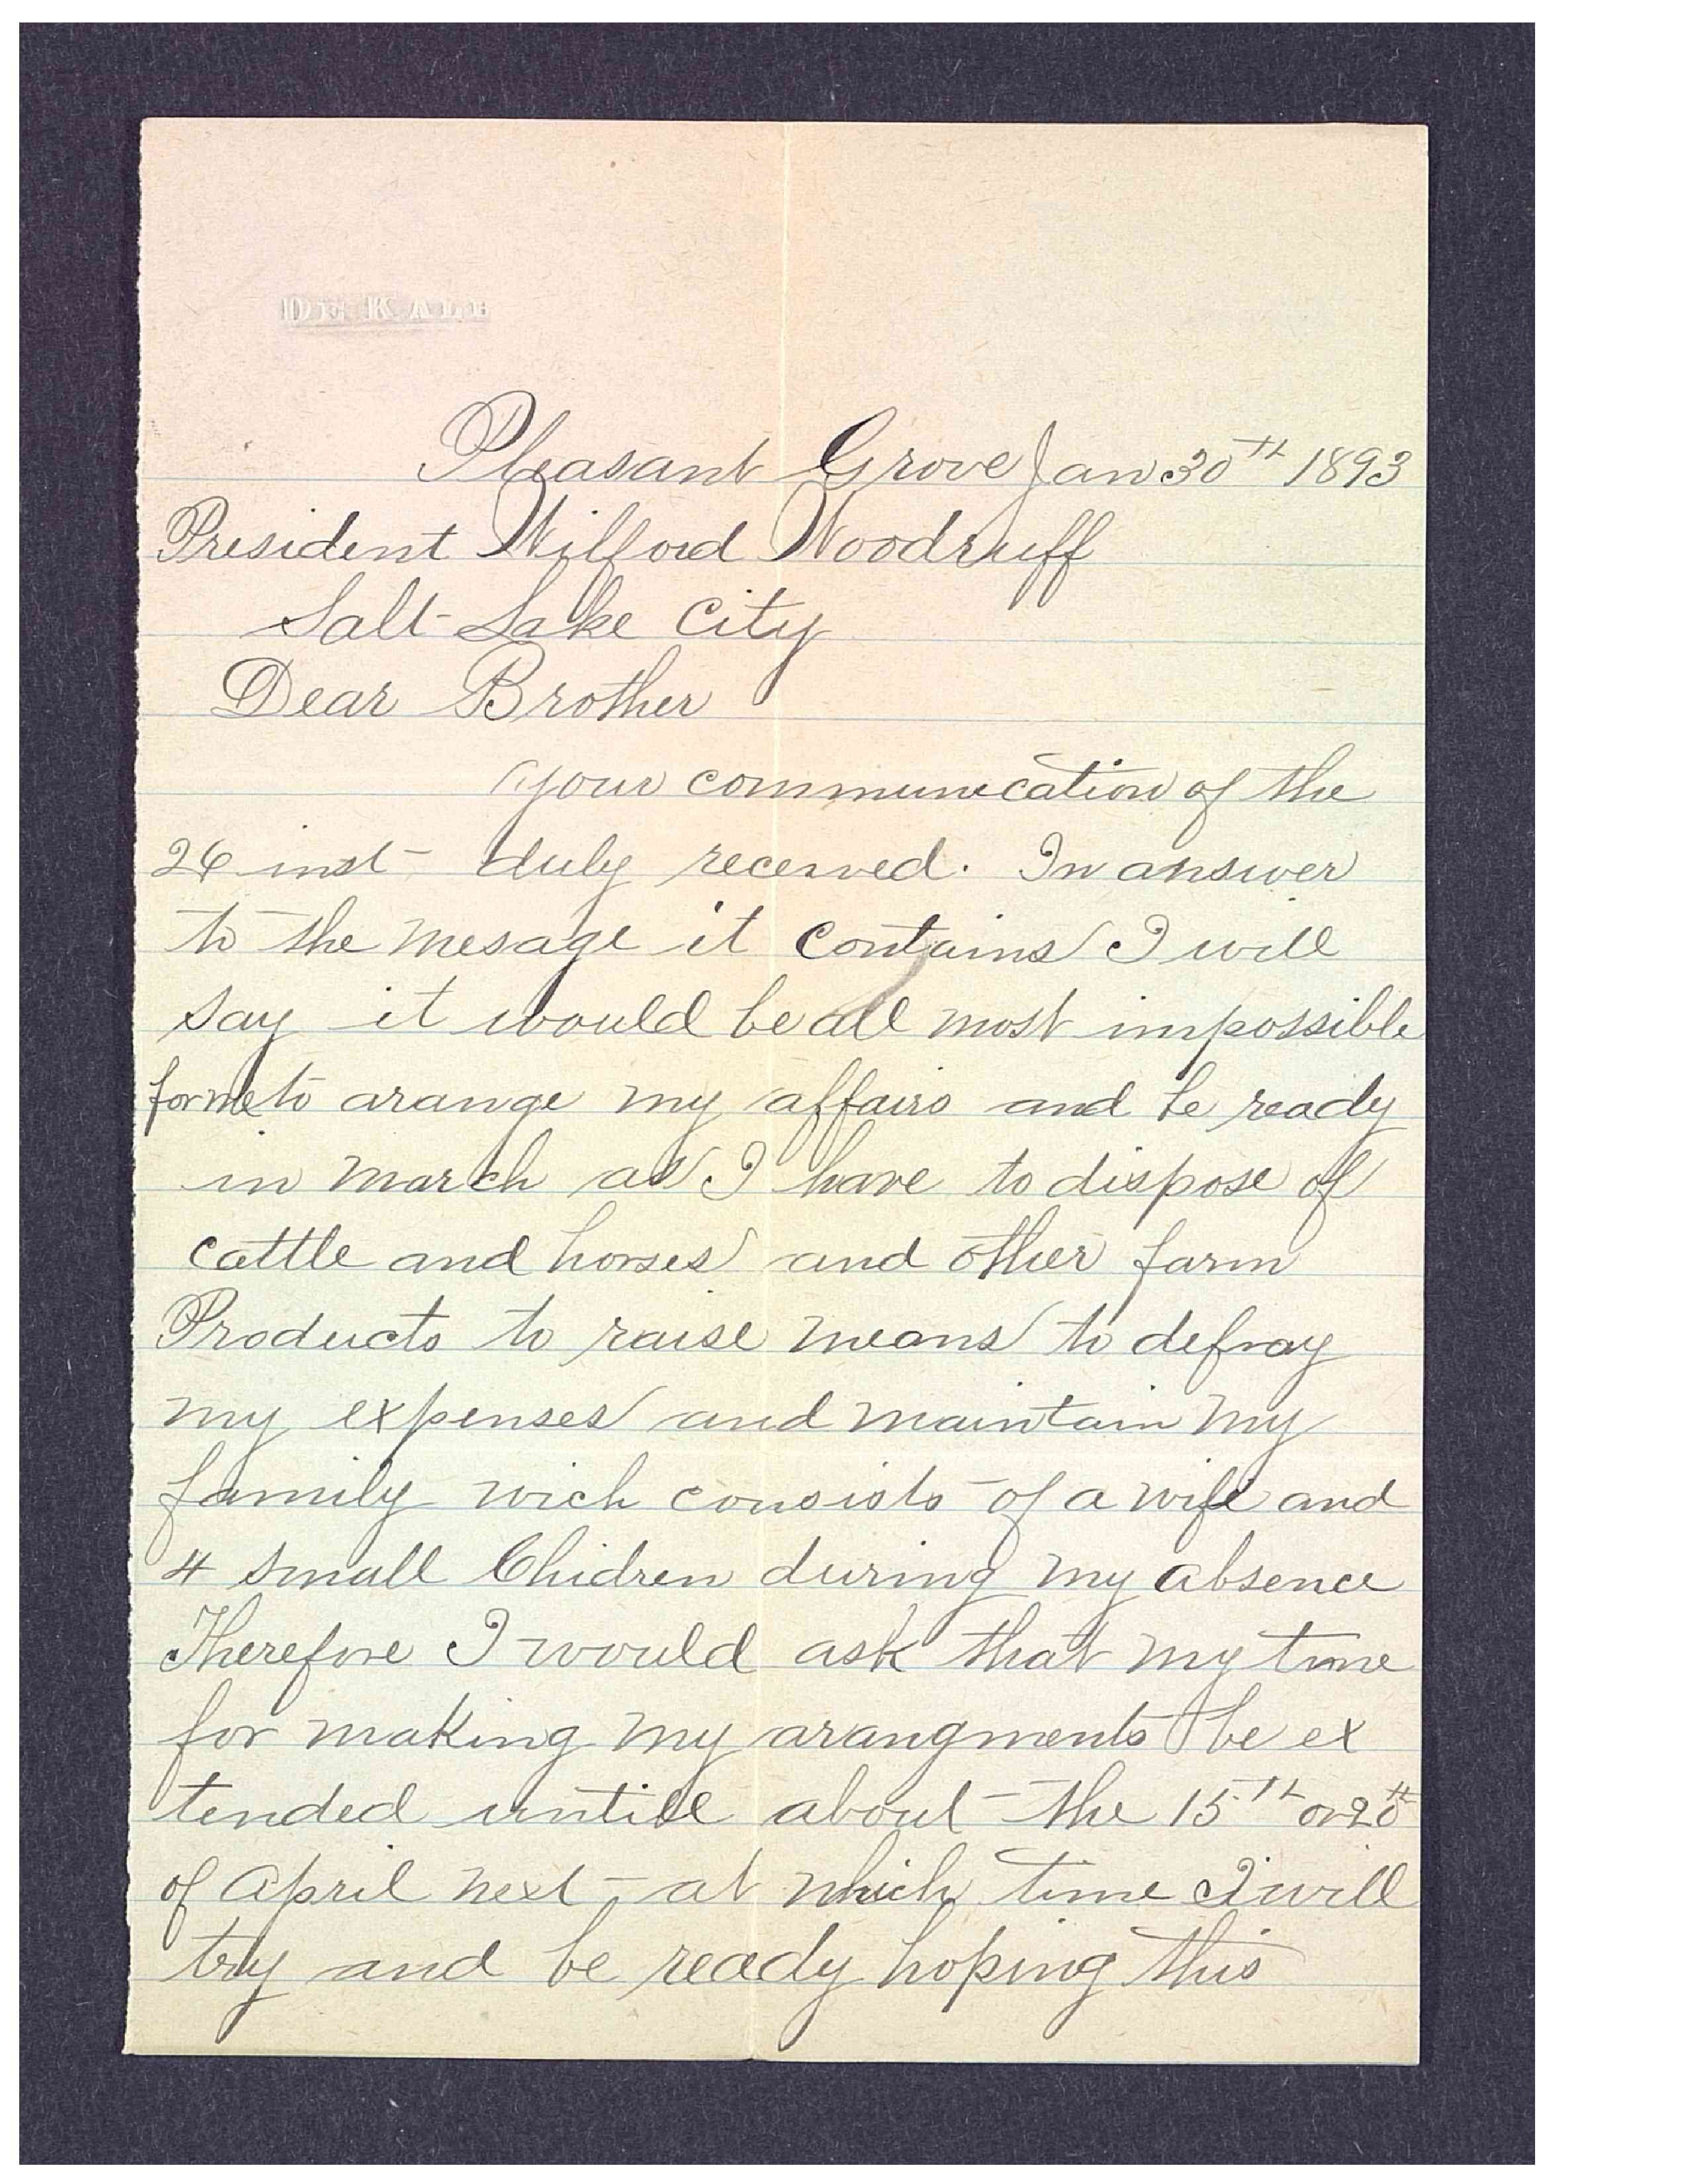 DE KALB
Pleasant Grove Jan 30th 1893
President Wilford Woodruff
Salt Lake City
Dear Brother
your communication of the
26 inst duly received. In answer
to the mesage it contains I will
say it would be all most impossible
for me to arange my affairs and be ready
in march as I have to dispose of
cattle and horses and other farm
Products to raise means to defray
my expenses and maintain my
family wich consists of a wife and
4 small Chidren during my absence
Therefore I would ask that my time
for making my arangments be ex
tended untill about the 15th or 20th
of April next, at which time I will
try and be ready hoping this